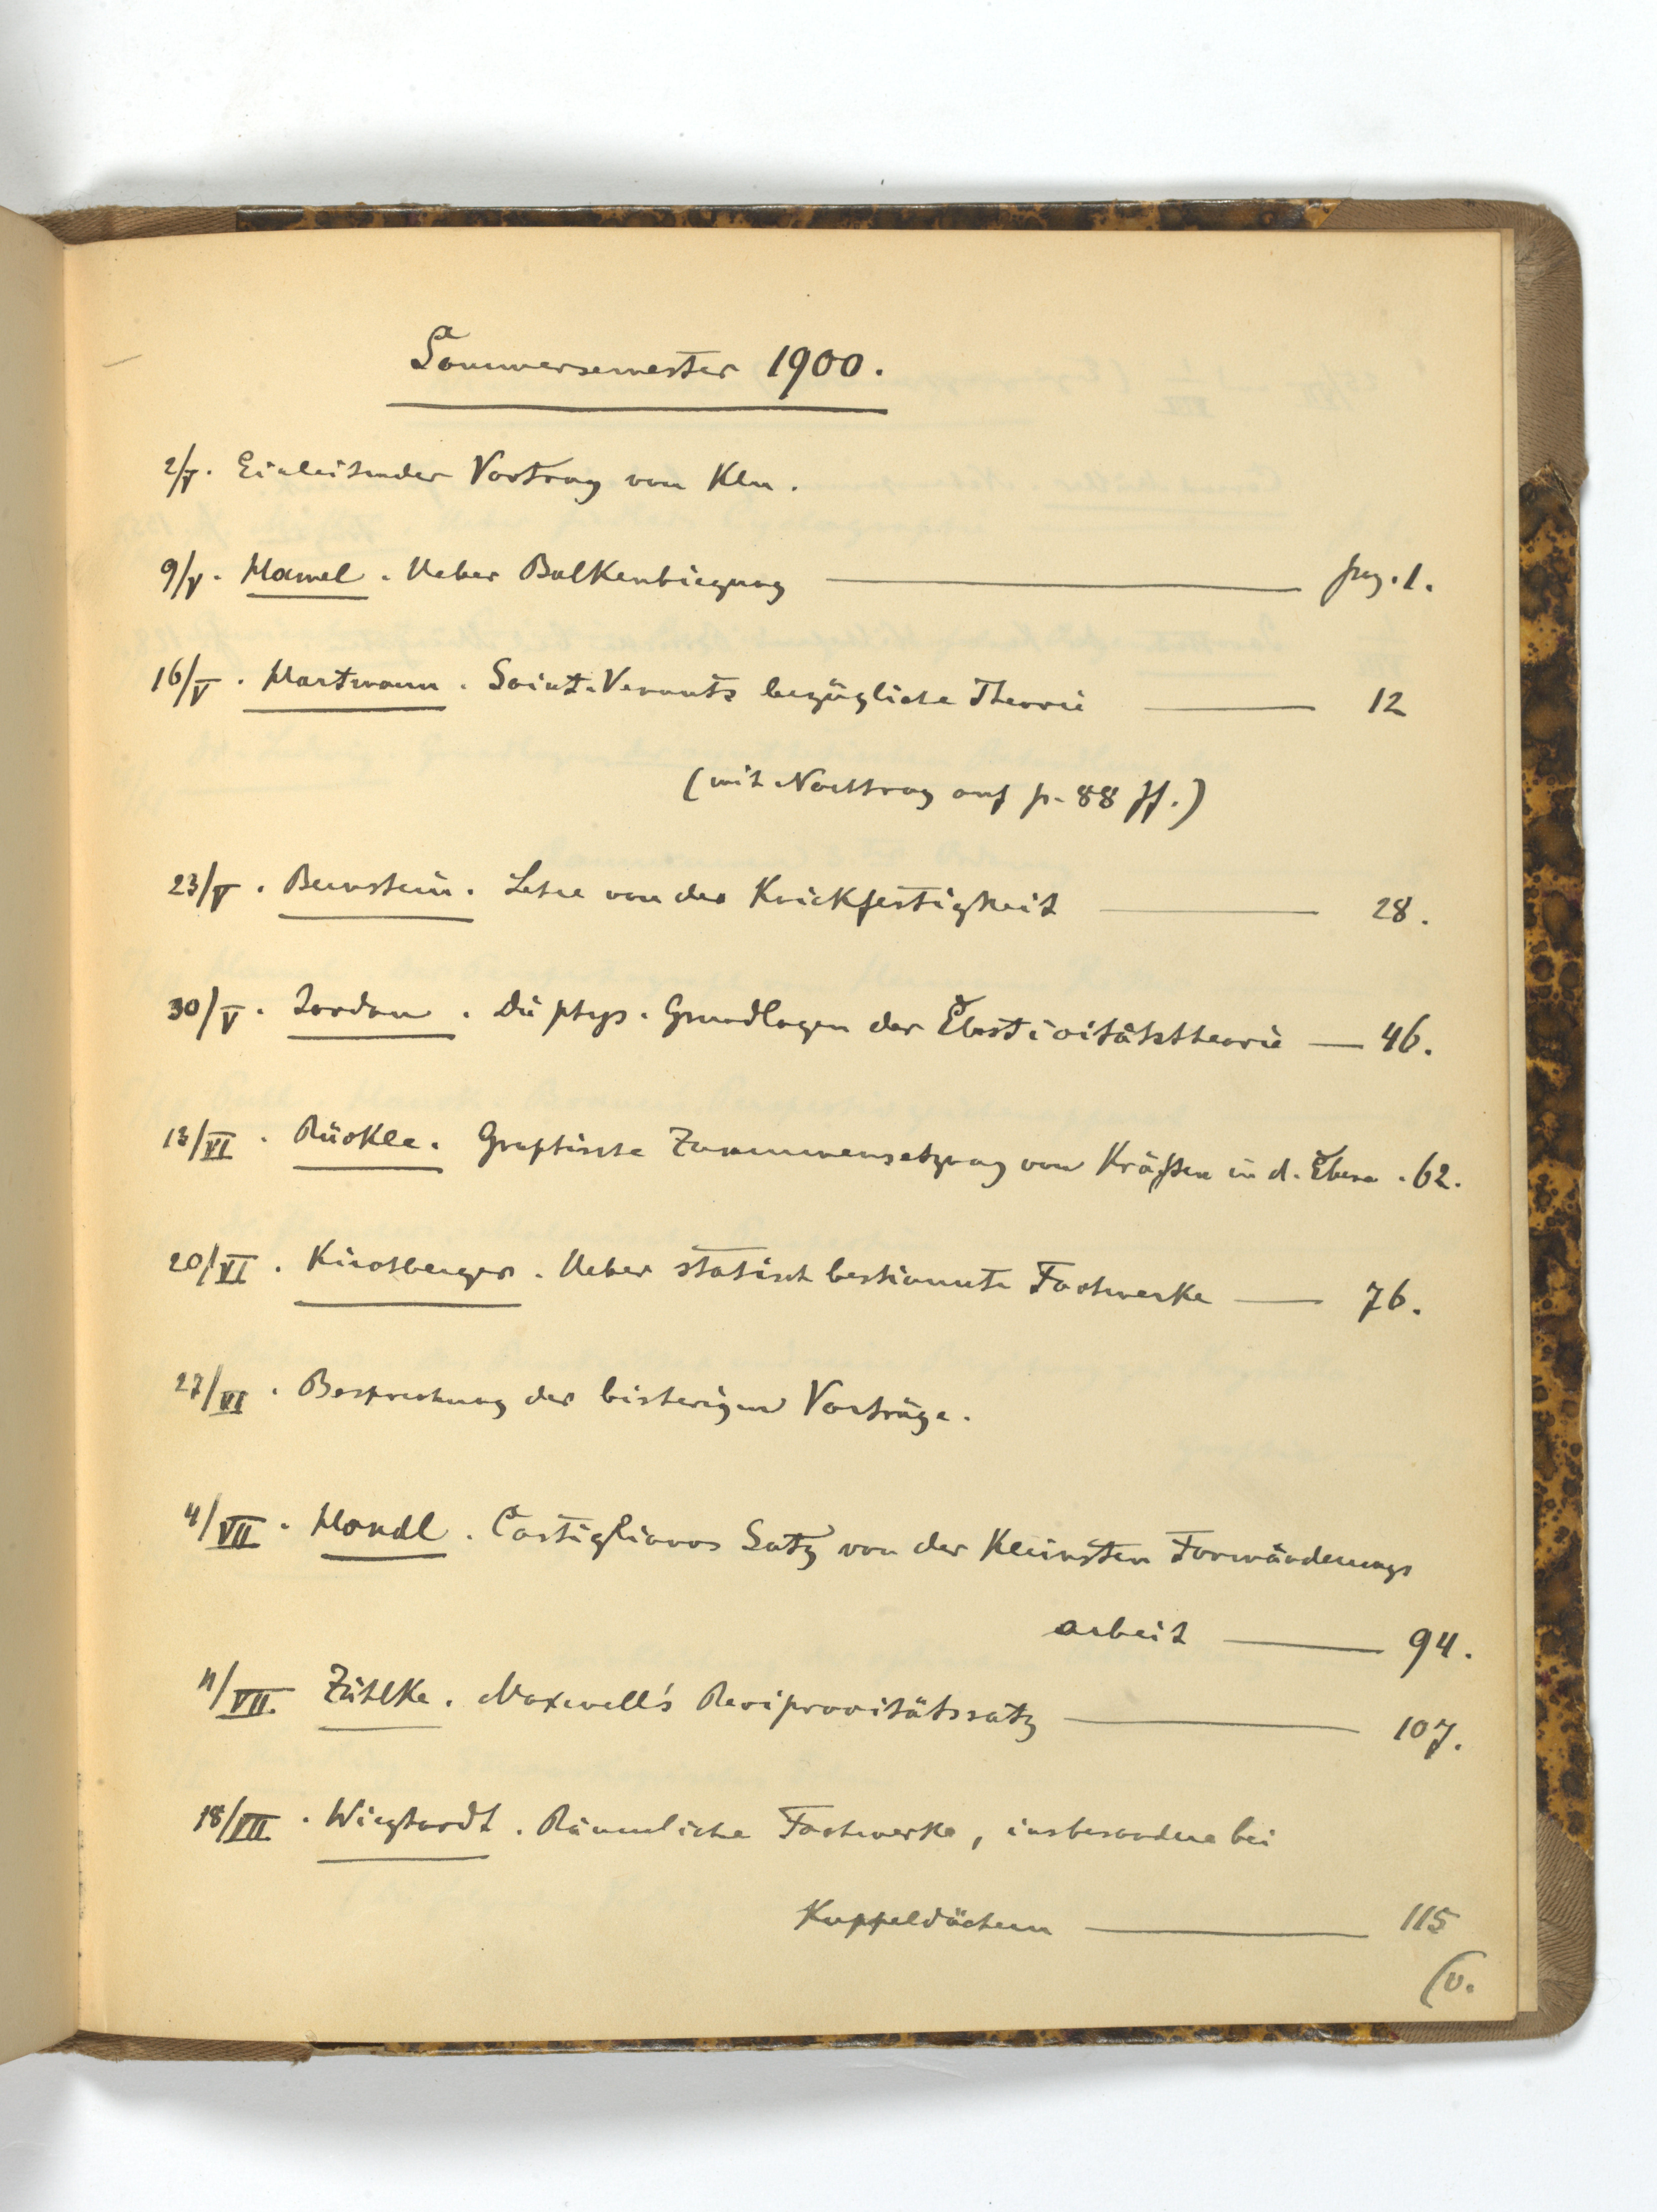 Sommersemester 1900.
2/V. Einleitender Vortrag von Kln.
9/V. Hamel. Ueber Balkenbiegung — pag. 1.
16/V. Hartmann. Saint-Venants bezügliche Theorie — 12
(mit Nachtrag auf p. 88 ff.)
23/V. Bernstein. Lehre von der Knickfestigkeit — 28.
30/V. Jordan. Die phys. Grundlagen der Elasticitätstheorie — 46.
13/VI. Rückle. Graphische Zusammensetzung von Kräften in d. Ebene. 62.
20/VI. Kirchberger. Ueber statisch bestimmte Fachwerke — 76.
27/VI. Besprechung der bisherigen Vorträge.
4/VII. Mandl. Castiglianos Satz von der kleinsten Formänderungs
arbeit — 94.
11/VII. Zühlke. Maxwell's Reciprocitätssatz — 107.
18/VII. Wieghardt. Räumliche Fachwerke, insbesondere bei
Kuppeldächern — 115
(v.